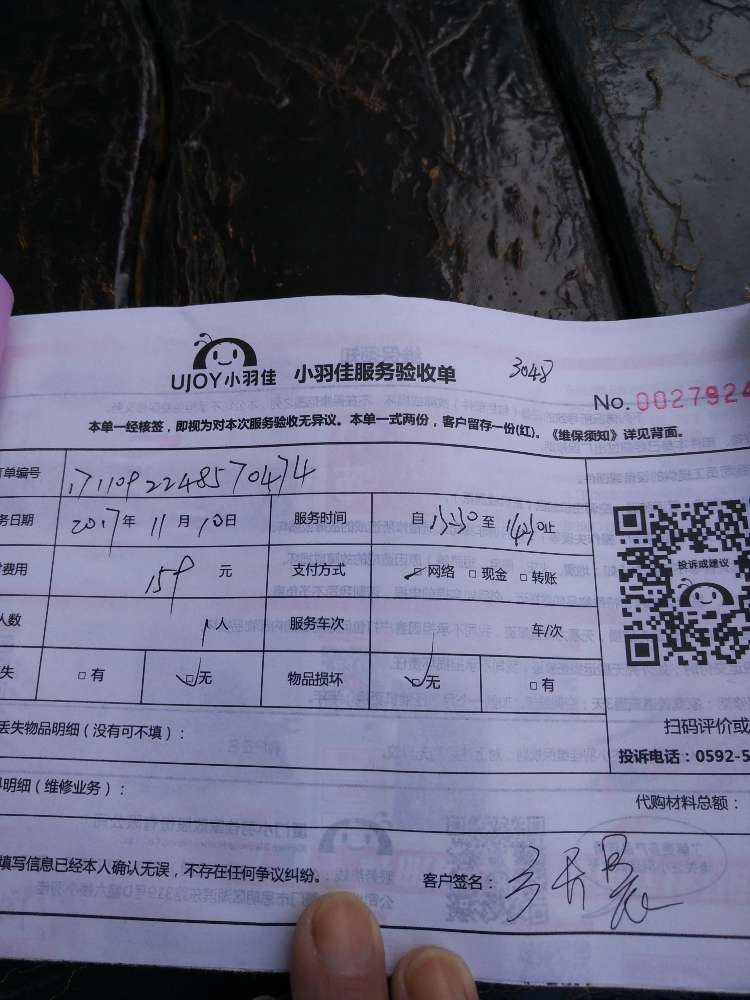 3048
UJOY小羽佳 小羽佳服务验收单
No. 0027924
本单一经核签，即视为对本次服务验收无异议。本单一式两份，客户留存一份(红)。《维保须知》详见背面。
单编号 1711092248570474
务日期 2017年 11月10日 服务时间 自13:30至 止
费用 159 元 支付方式 网络 □现金 □转账
投诉或建议
人数 1人 服务车次 车/次
失 □有 □无 物品损坏 □无 □有
扫码评价或
丢失物品明细（没有可不填）：
投诉电话：0592-5
明细（维修业务）：
代购材料总额：
填写信息已经本人确认无误，不存在任何争议纠纷。 客户签名：